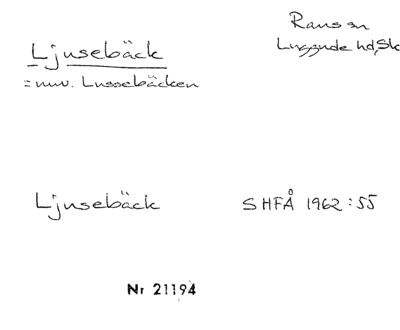 Ljusebäck
Raus sn
Luggude hd, Sk
= nuv. Lussebäcken
Ljusebäck
SHFÅ 1962:55
Nr 21194